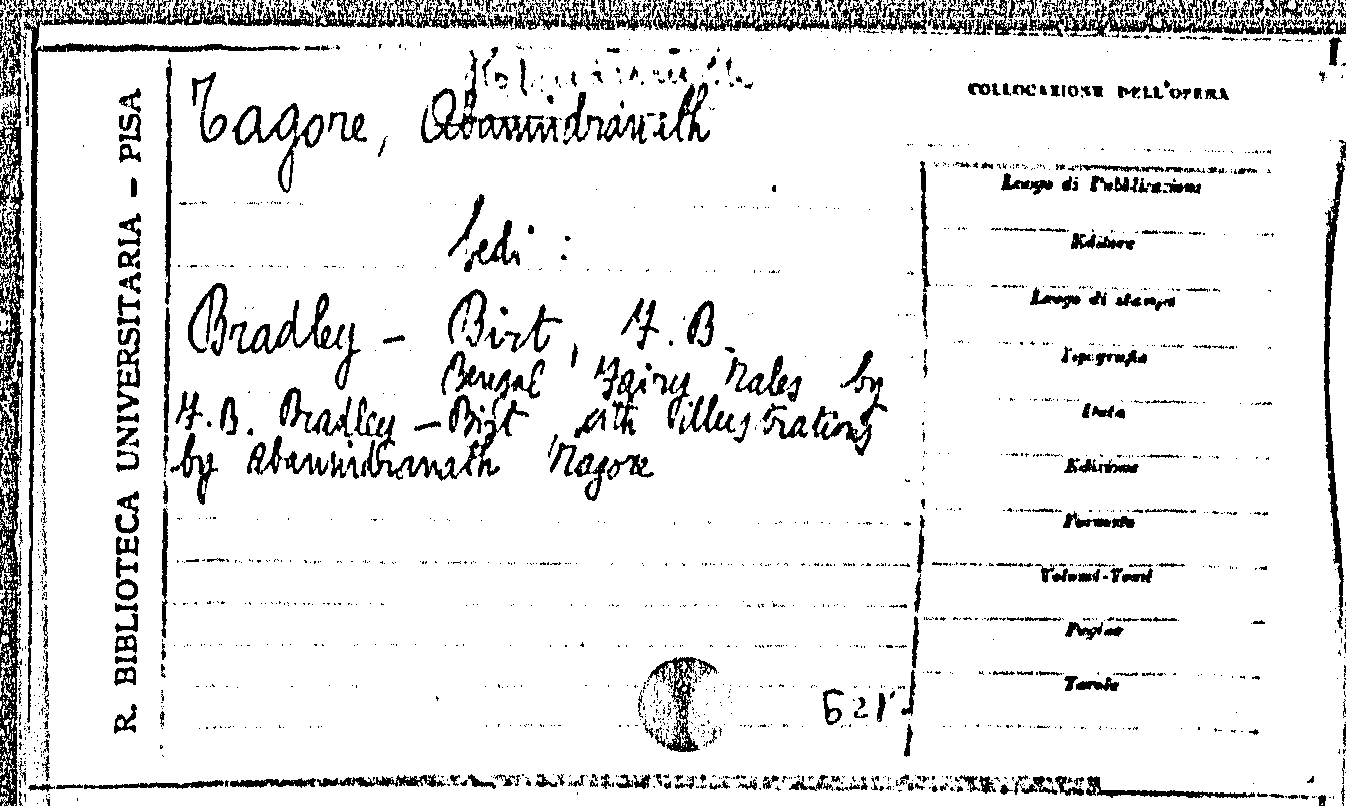 R. BIBLIOTECA UNIVERSITARIA - PISA
Tagore, Abanindranath
Vedi :
Bradley - Birt, F. B.
Bengal Fairy Tales by
F. B. Bradley - Birt, with illustrations
by Abanindranath Tagore
621
COLLOCAZIONE DELL'OPERA
Luogo di Pubblicazione
Editore
Luogo di stampa
Tipografia
Data
Edizione
Formato
Volumi-Tomi
Pagine
Tavole